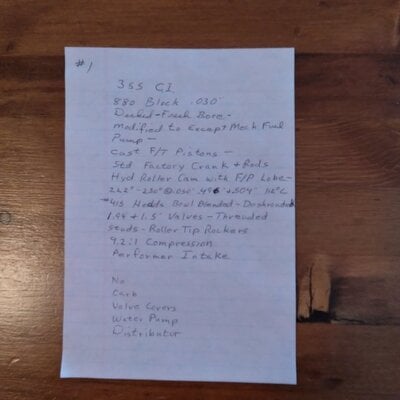 #1
355 CI
880 Block .030"
Decked - Fresh Bore -
modified to Except Mech Fuel
Pump -
Cast F/T Pistons -
Std Factory Crank + Rods
Hyd Roller Cam with F/P Lobe -
@.050" .504"
Heads Bowl Blended - Deshrouded
1.94 + 1.5" Valves - Threaded
Studs - Roller Tip Rockers
9.2:1 Compression
Performer Intake
No
Carb
Valve Covers
Water Pump
Distributor